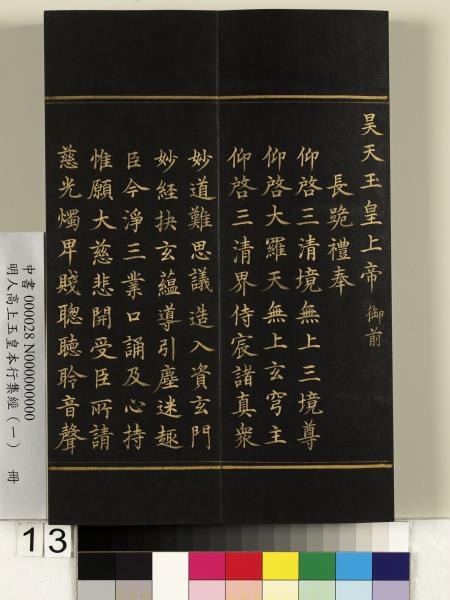 昊天玉皇上帝 御前
長跪禮奉
仰啓三清境無上三境尊
仰啓大羅天無上玄穹主
仰啓三清界侍宸諸真衆
妙道難思議造入資玄門
妙經抉玄蘊導引塵迷趣
臣今淨三業口誦及心持
惟願大慈悲開受臣所請
慈光燭卑賤聰聽聆音聲
中書 000028 N000000000
明人高上玉皇本行集經（一） 冊
13